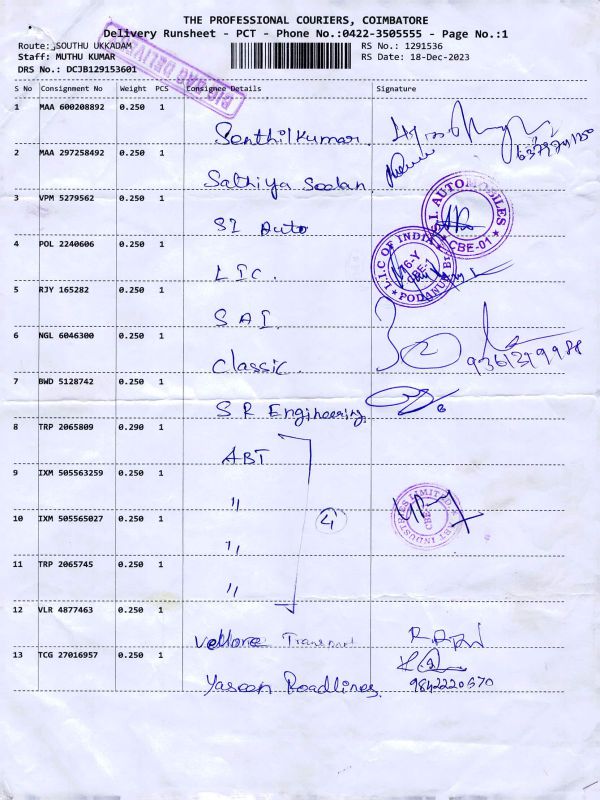 THE PROFESSIONAL COURIERS, COIMBATORE
Delivery Runsheet - PCT - Phone No.:0422-3505555 - Page No.:1
Route: SOUTHU UKKADAM RS No.: 1291536
Staff: MUTHU KUMAR RS Date: 18-Dec-2023
DRS No.: DCJB129153601
S No Consignment No Weight PCS Consignee Details Signature
1 MAA 600208892 0.250 1
Senthilkumar
2 MAA 297258492 0.250 1
Sathiya
3 VPM 5279562 0.250 1
SI Auto
S.I. AUTOMOBILES
CBE-01
4 POL 2240606 0.250 1
LIC.
L.I.C OF INDIA
CBE-1
5 RJY 165282 0.250 1
SAI
6 NGL 6046300 0.250 1
Classic.
7 BWD 5128742 0.250 1
S R Engineering
8 TRP 2065809 0.290 1
ABT
9 IXM 505563259 0.250 1
"
10 IXM 505565027 0.250 1
" 4
ABT INDUSTRIES LIMITED
CBE
11 TRP 2065745 0.250 1
"
12 VLR 4877463 0.250 1
Vellore Transport
13 TCG 27016957 0.250 1
Yaseen Roadlines
9842220570